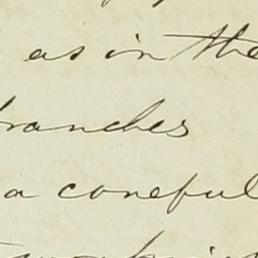 as in the
branches
a careful